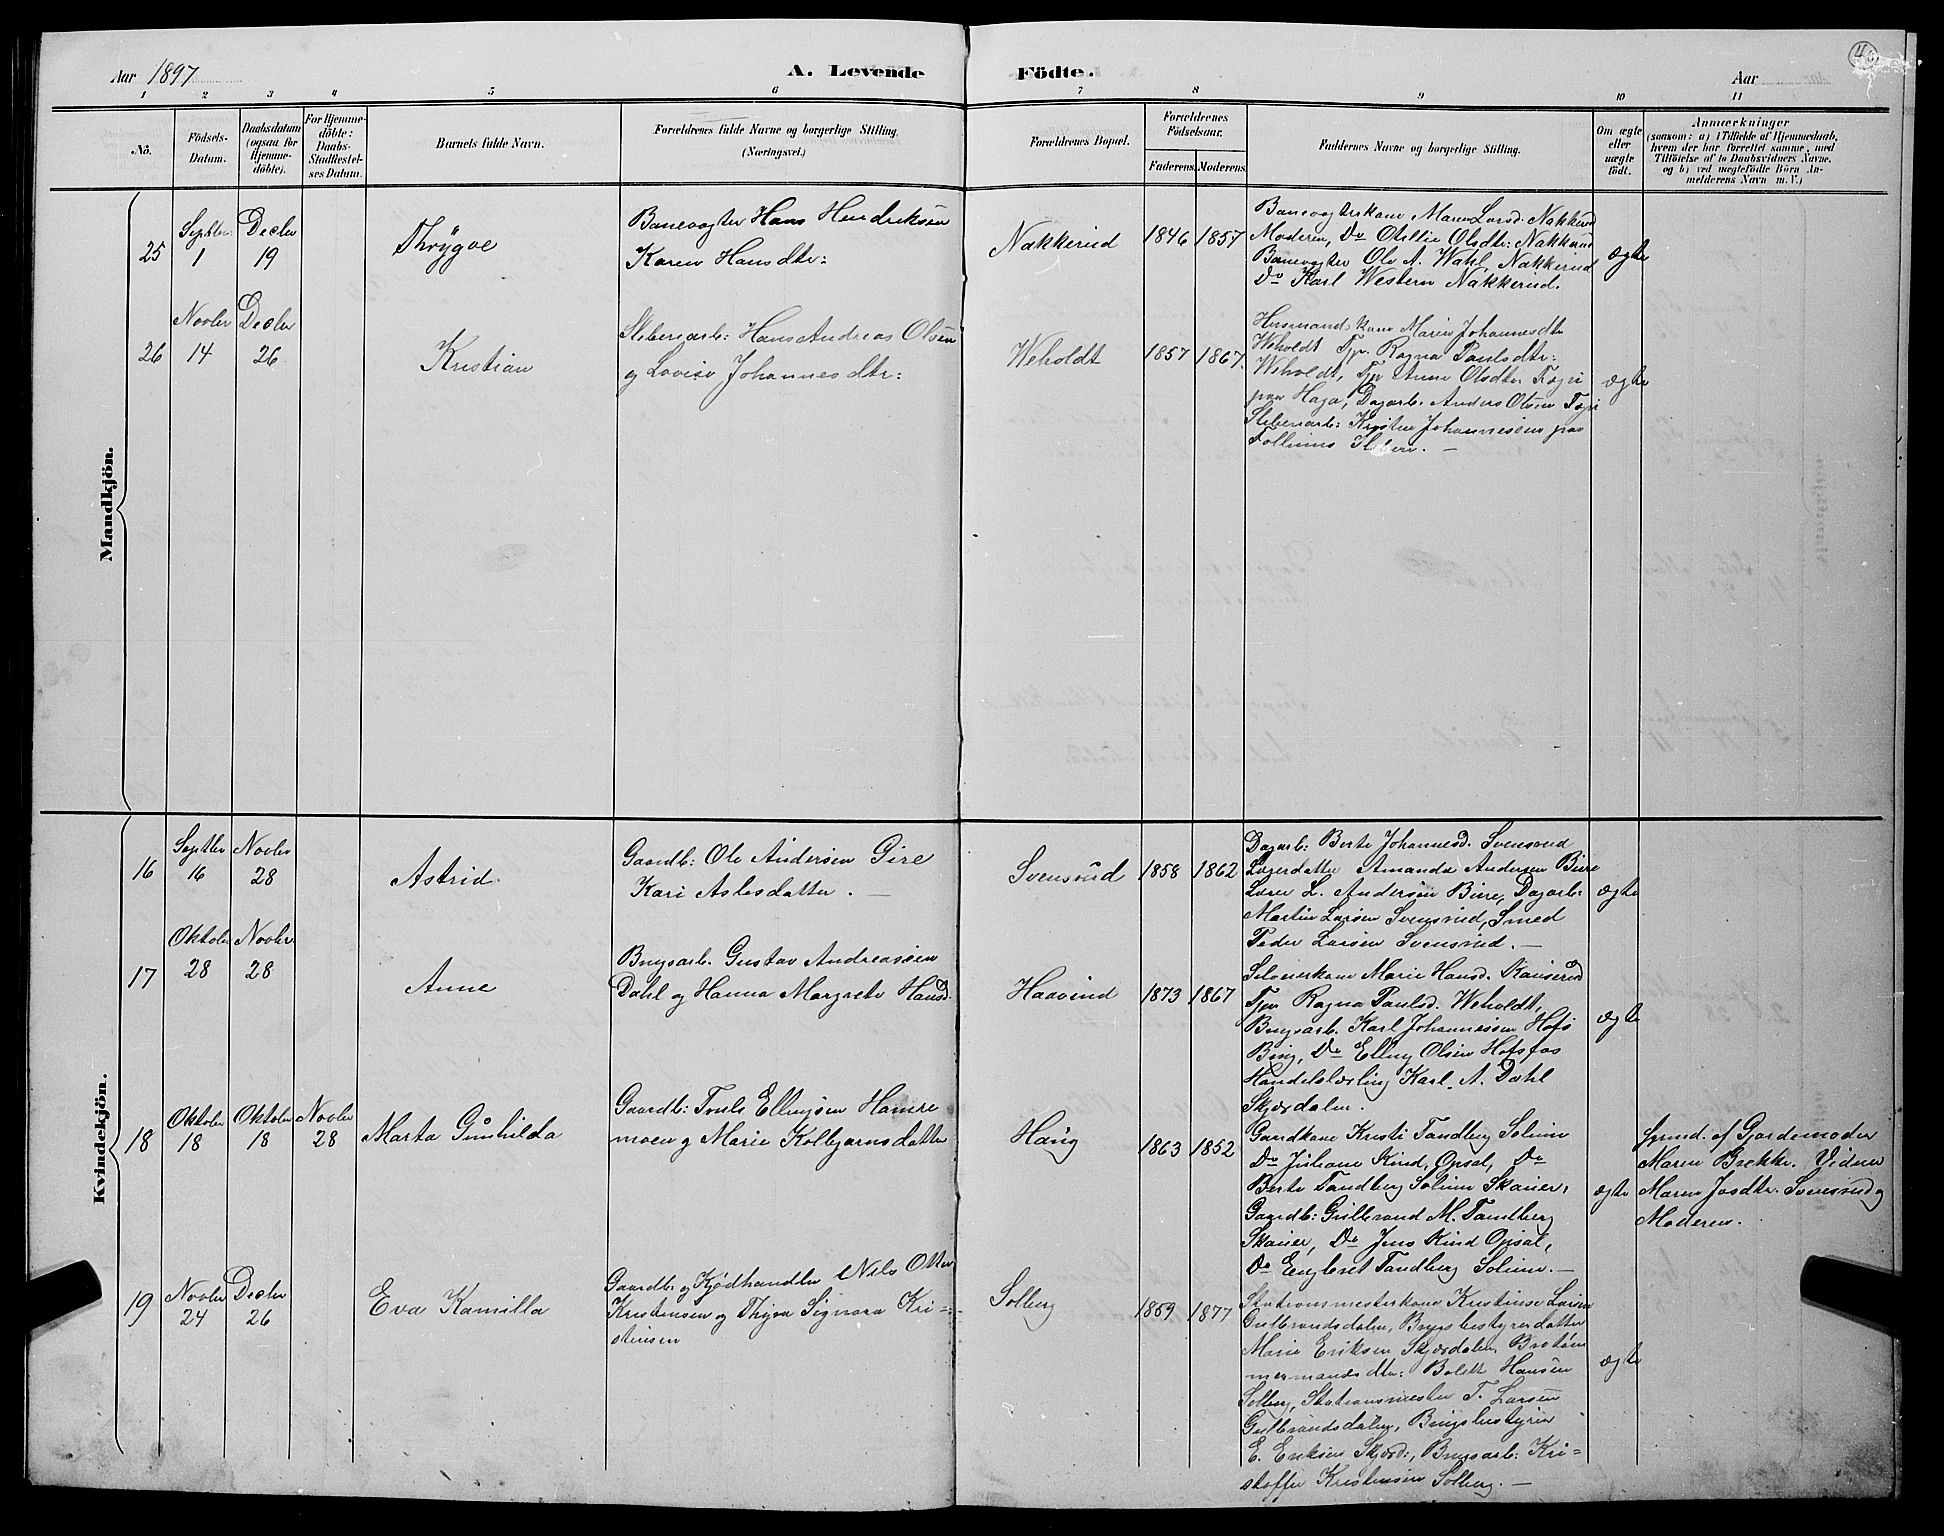 Aar 1897
A. Levende Födte.
Aar
1 2 3 4 5 6 7 8 9 10 11
No.
Födsels-
Datum.
Daabsdatum
(ogsaa for
Hjemme-
döbte).
For Hjemme-
döbte:
Daabs-
Stadfæstel-
ses Datum.
Barnets fulde Navn.
Forældrenes fulde Navne og borgerlige Stilling.
(Næringsvei.)
Forældrenes Bopæl.
Forældrenes
Födselsaar.
Faderens. Moderens.
Faddernes Navne og borgerlige Stilling.
Om ægte
eller
uægte
födt.
Anmærkninger
(saasom: a) i Tilfælde af Hjemmedaab,
hvem der har forrettet samme, med
Tilföielse af to Daabsvidners Navne,
og b) ved uægtefödte Börn An-
melderens Navn m. V.)
Mandkjön.
25
Septbr
1
Decbr
19
Thrygve
Banevogter Hans Hendriksen
Karen Hansdtr:
Nakkerud
1846 1857
Banevogterkone Maren Larsd. Nakkerud
Moderen, Do Otillie Olsdtr: Nakkerud
Banevogter Ole A. Wahl, Nakkerud
Do Karl Western Nakkerud.
ægte
26
Novbr
14
Decbr
26
Kristian
Sliberiarb: Hans Andreas Olsen
og Lovise Johannesdtr:
Weholdt
1857 1867.
Husmands kone Maren Johannesdtr
Weholdt Tje. Ragna Paulsdtr:
Weholdt, Tje Anne Olsdtr.
paa Haga, Dagarb. Anders Olsen
Sliberiarb: Kristen Johannesen paa
Follums Sliberi. —
ægte
Kvindekjön.
16
Septbr
16
Novbr
28
Astrid
Gaardb: Ole Andersen Gire
Kari Aslesdatter. —
Svensrud
1858 1862
Dagarb: Berte Johannesd. Svensrud
Lærerdatter Amanda Andersen Bire
Lærer L. Andersen Bire, Dagarb:
Martin Larsen Svensrud, Smed
Peder Larsen Svensrud. —
ægte
17
Oktober
28
Novbr
28
Anne
Brugsarb. Gustav Andreassen
Dahl og Hanna Margrete Hansd.
Haavind
1873 1867
Marie Hansd.
Tje Ragna Paulsd. Weholdt,
Brugsarb. Karl Johannessen Hofs
Brug, Do Elling Olsen Hofsfos
Handelslærling Karl. A. Dahl
Skjærdalen.
ægte
18
Oktober
18
Oktober
18
Novbr
28
Marta Gunhilda
Gaardb: Truls Ellingsen Hamre
moen og Marie Kolbjørnsdatter
Haug
1863 1852
Gaardkone Kristi Tandberg Solum
Do Juliane Kind, Opsal, Do
Berte Tandberg Solum Skauer,
Gaardb: Gulbrand M. Tandberg
Skauer, Do Jens Kind Opsal,
Do Engebret Tandberg Solum. —
ægte
af Gjordemoder
Maren Brekke. Vidner
Maren Josdtr. Svensrud og
Moderen.
19
Novbr
24
Decbr
26
Eva Kamilla
Gaardb: og Kjødhandler Nils Otter
Kristensen og Thyra Signora Kri-
stensen
Solberg
1859 1877
Stationsmesterkone Kristense Larsen
Gulbrandsdalen, Brugsbestyrerdatter
Marie Eriksen Skjærdalen,
mermandsdtr: Bolett Hansen
Solberg, Stationsmester T. Larsen
Gulbrandsdalen, Brugsbestyrer
E. Eriksen Skjærd:, Brugsarb: Kri=
stoffer Kristensen Solberg. —
ægte